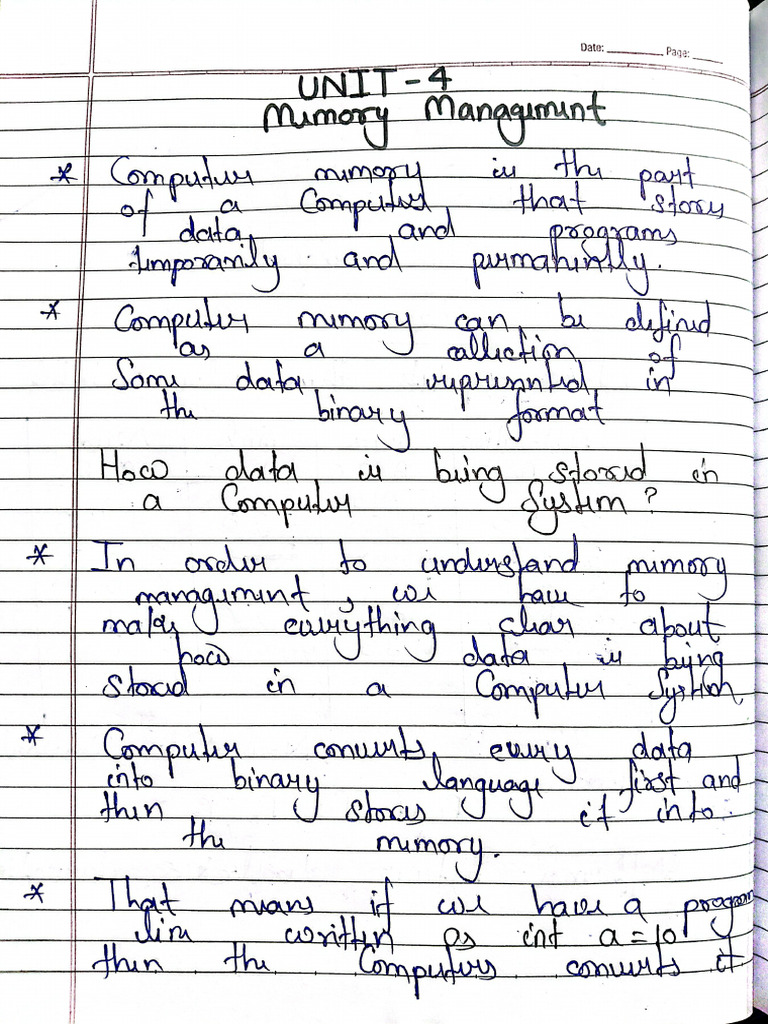 Date: ________ Page: ____
UNIT-4
Memory Management
* Computer memory is the part
of a Computer that stores
data and programs
temporarily and permanently.
* Computer memory can be defined
as a collection of
Some data represented in
the binary format
How data is being stored in
a Computer System?
* In order to understand memory
management, we have to
make everything clear about
how data is being
stored in a Computer System
* Computer converts every data
into binary language first and
then stores it into
the memory.
* That means if we have a program
line written as int a=10
then the Computers converts it